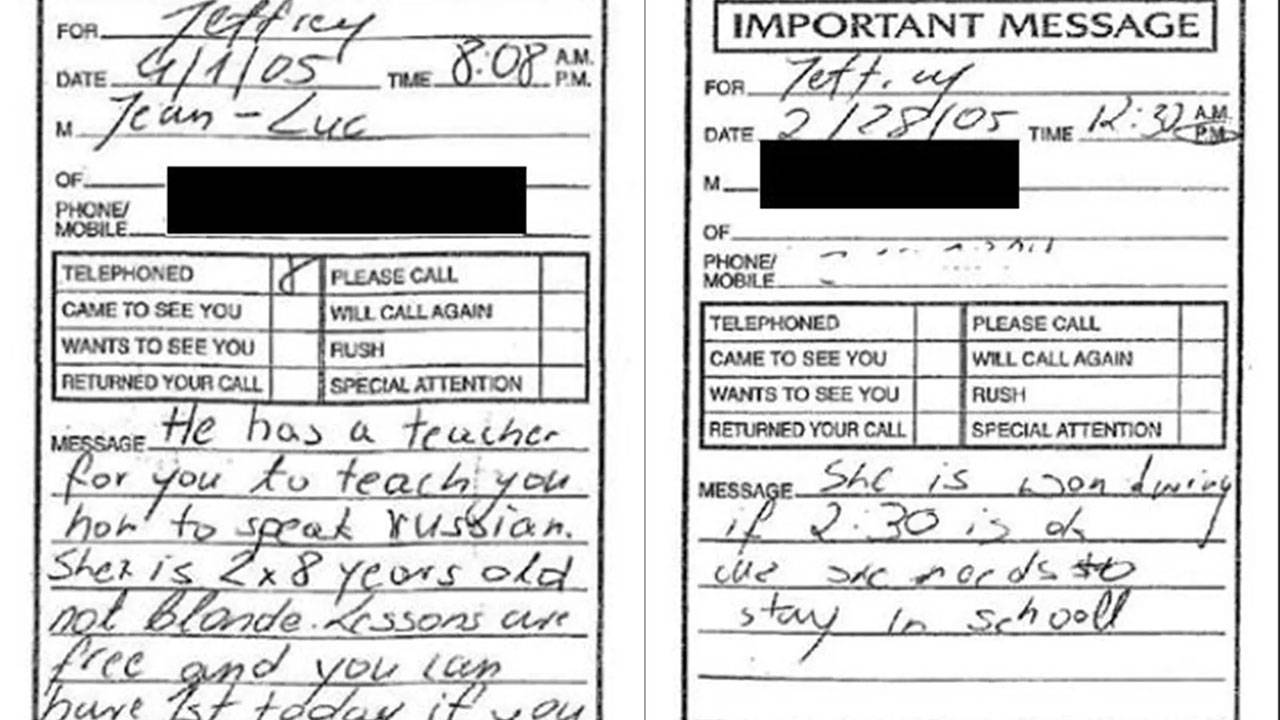 FOR Jeffrey
DATE 4/1/05 TIME 8:08 A.M. P.M.
M Jean-Luc
OF
PHONE/
MOBILE
TELEPHONED PLEASE CALL
CAME TO SEE YOU WILL CALL AGAIN
WANTS TO SEE YOU RUSH
RETURNED YOUR CALL SPECIAL ATTENTION
MESSAGE He has a teacher
for you to teach you
how to speak russian.
She is 2x8 years old
not blonde. Lessons are
free and you can
have 1st today if you
IMPORTANT MESSAGE
FOR Jeffrey
DATE 2/28/05 TIME 12:30 A.M. P.M.
M
OF
PHONE/
MOBILE
TELEPHONED PLEASE CALL
CAME TO SEE YOU WILL CALL AGAIN
WANTS TO SEE YOU RUSH
RETURNED YOUR CALL SPECIAL ATTENTION
MESSAGE She is wondwring
if 2:30 is ok
she needs to
stay in schooll